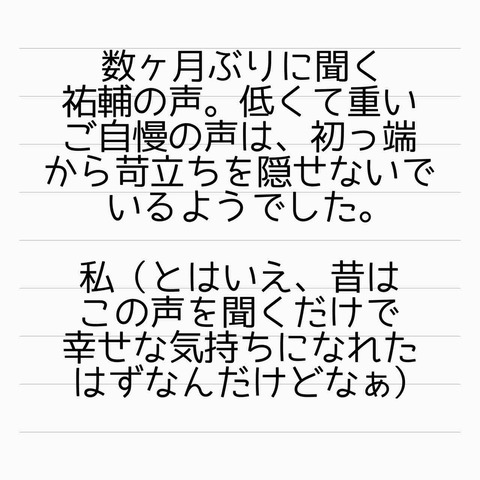 数ヶ月ぶりに聞く
祐輔の声。低くて重い
ご自慢の声は、初っ端
から苛立ちを隠せないで
いるようでした。
私（とはいえ、昔は
この声を聞くだけで
幸せな気持ちになれた
はずなんだけどなぁ）